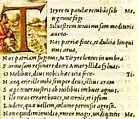 Ityre tu patulæ recubās sub Me.
tegmine fagi
Siluestrem tenui musam meditaris
auena.
Nos patriæ fines, et dulcia linqui
mus arua,
N os patriam fugimus, tu Tityre lentus in umbra
F ormosam resonare doces Amaryllida syluas.
O Melibœe, deus nobis hæc otia fecit. Ti.
N anq; erit ille mihi semper deus, illius aram
S æpe tener nostris ab ouilibus imbuet agnus.
I lle meas errare boues, ut cernis, et ipsum
L udere, quæ uellem, calamo permisit agresti.